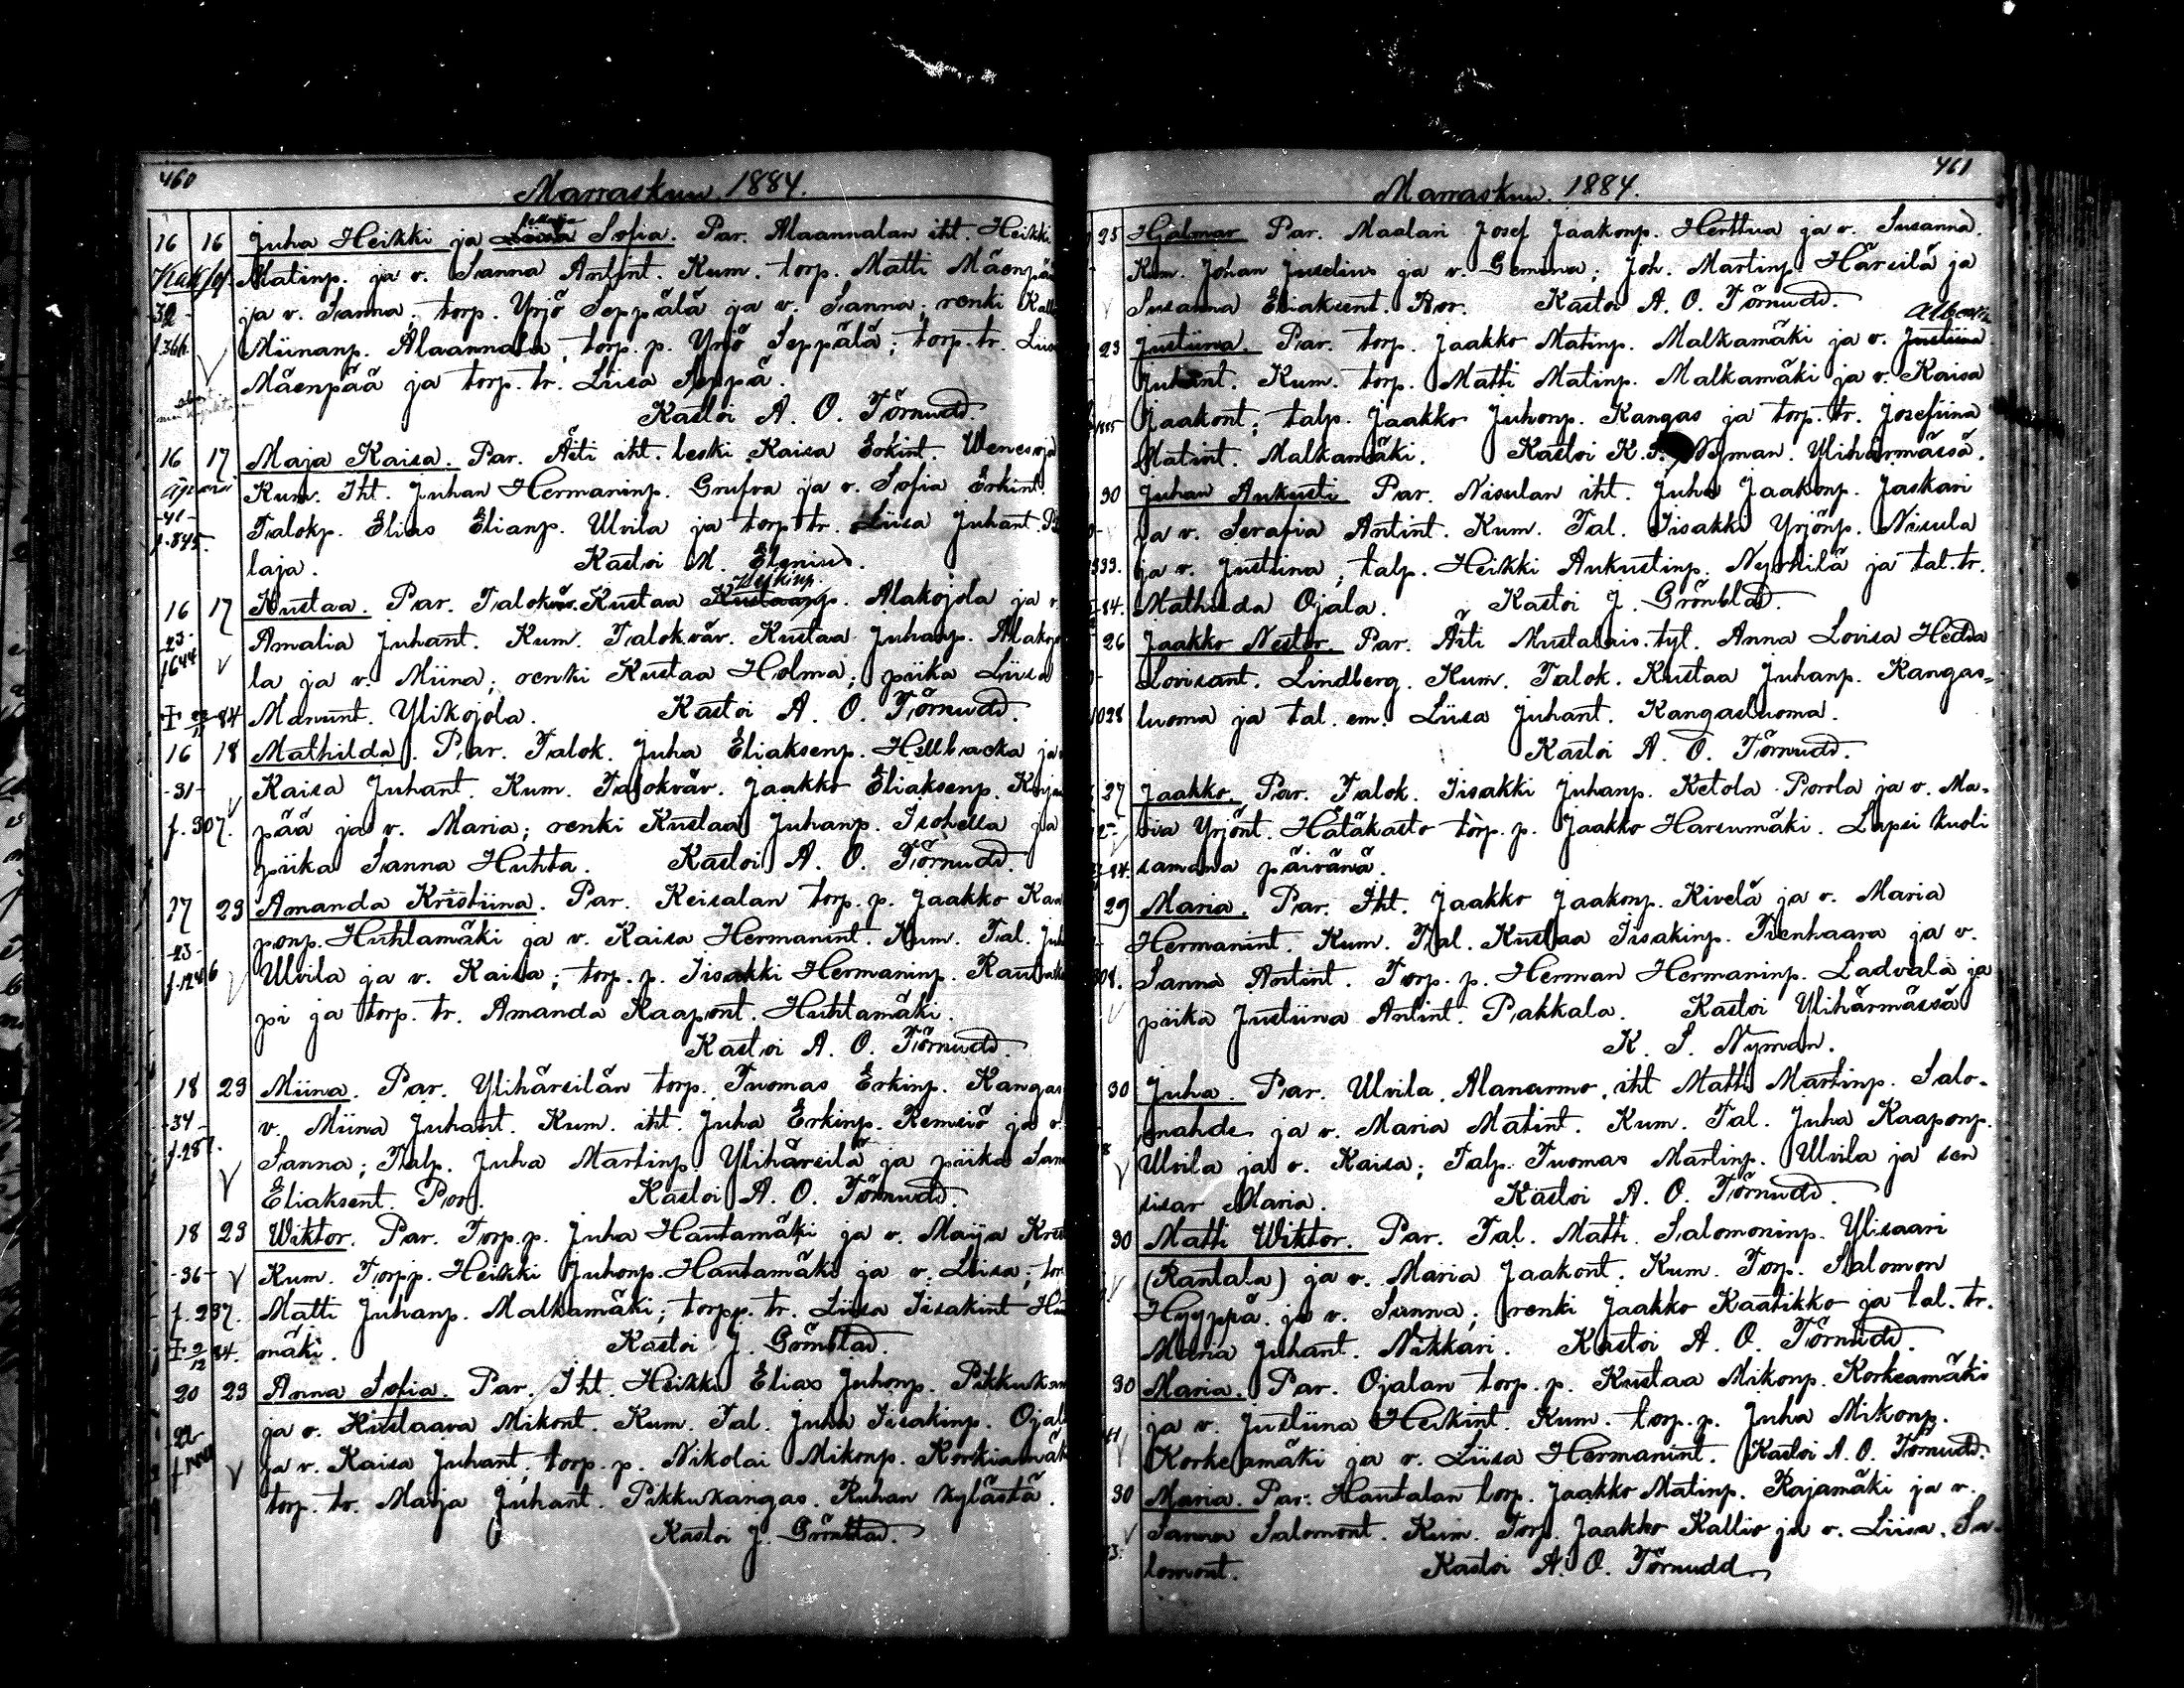 460
Marraskuu 1884.
16 16 Juha Heikki ja Sofia. Par. Alaannalan iht. Heikki
Kaksos. Matinp. ja v. Sanna Antint. Kum. torp. Matti Mäenpää
32 ja v. Sanna; torp. Yrjö Seppälä ja v. Sanna; renki
f.366. Miinanp. Alaannala, torp. p. Yrjö Seppälä; torp. tr.
Mäenpää ja torp. tr. Liisa Seppä.
Kastoi A. O. Törnudd.
16 17 Maja Kaisa. Par. Äiti iht. leski Kaisa Erkint.
Äpärä Kum. Iht. Juhan Hermaninp. Grufva ja v. Sofia Erkint.
-41- Talokp. Elias Elianp. Ulvila ja torp tr. Liisa Juhant.
f.845. laja. Kastoi M. Elenius.
Heikinp.
16 17 Kustaa. Par. Talokväv. Kustaa Kustaanp. Alakojola ja v.
-23- Amalia Juhant. Kum. Talokväv. Kustaa Juhanp. Alakojo
1644 la ja v. Miina; renki Kustaa Holma; piika Liisa
84 Manunt. Ylikojola. Kastoi A. O. Törnudd.
16 18 Mathilda. Par. Talok. Juha Eliaksenp. Hellbacka ja
-31- Kaisa Juhant. Kum. Talokväv. Jaakko Eliaksenp.
f.307. pää ja v. Maria; renki Kustaa Juhanp. Isohella ja
piika Sanna Huhta. Kastoi A. O. Törnudd.
17 23 Amanda Kristiina. Par. Keisalan torp. p. Jaakko Kaa
-43- ponp. Huhtamäki ja v. Kaisa Hermanint. Kum. Tal.
f.1246 Ulvila ja v. Kaisa; torp. p. Iisakki Hermaninp.
pi ja torp. tr. Amanda Kaapont. Huhtamäki.
Kastoi A. O. Törnudd.
18 23 Miina. Par. Ylihärsilän torp. Tuomas Erkinp. Kangas
-34- v. Miina Juhant. Kum. iht. Juha Erkinp. Remsiö ja v.
f.287. Sanna; Talp. Juha Martinp. Ylihärsilä ja piika
Eliaksent. Por. Kastoi A. O. Törnudd.
18 23 Wiktor. Par. Torp. p. Juha Hautamäki ja v. Maija
-36- Kum. Torpp. Heikki Juhonp. Hautamäki ja v. Liisa;
f.237. Matti Juhanp. Malkamäki; torpp. tr. Liisa Iisakint
84. mäki. Kastoi J. Grönblad.
20 23 Anna Sofia. Par. Iht. Heikki Elias Juhonp.
-22- ja v. Kustaava Mikont. Kum. Tal. Juha Iisakinp.
ja v. Kaisa Juhant; torp. p. Nikolai Mikonp. Korkiamäki
torp. tr. Maija Juhant. Pikkukangas. Ruhan kylästä.
Kastoi J. Grönblad.
461
Marraskuu 1884.
25 Hjalmar Par. Maalari Josef Jaakonp. Herttua ja v. Susanna.
Kum. Johan Juselius ja v. Gemina; Joh. Martinp. Härsilä ja
Susanna Eliaksent. Por. Kastoi A. O. Törnudd.
23 Justiina. Par. torp. Jaakko Matinp. Malkamäki ja v. Justiina
Juhant. Kum. torp. Matti Matinp. Malkamäki ja v. Kaisa
Jaakont; talp. Jaakko Juhonp. Kangas ja torp. tr. Josefiina
Matint. Malkamäki. Kastoi K. S. Nyman. Ylihärmässä.
30 Juhan Aukusti Par. Nisulan iht. Juha Jaakonp. Jaskari
ja v. Serafia Antint. Kum. Tal. Iisakki Yrjönp. Nisula
333. ja v. Justiina; talp. Heikki Aukustinp. Nyrhilä ja tal. tr.
84. Mathilda Ojala. Kastoi J. Grönblad.
26 Jaakko Nestor. Par. Äiti Mustalais. tyt. Anna Lovisa Hedda
Lovisant. Lindberg. Kum. Talok. Kustaa Juhanp. Kangas=
1028 luoma ja tal. em. Liisa Juhant. Kangasluoma.
Kastoi A. O. Törnudd.
27 Jaakko. Par. Talok. Iisakki Juhanp. Ketola Porola ja v. Ma-
ria Yrjönt. Hätäkasto torp. p. Jaakko Harsumäki. Lapsi kuoli
84. samana päivänä.
29 Maria. Par. Iht. Jaakko Jaakonp. Kivelä ja v. Maria
Hermanint. Kum. Tal. Kustaa Iisakinp. Tienhaara ja v.
Sanna Antint. Torp. p. Herman Hermaninp. Ladvala ja
piika Justiina Antint. Pakkala. Kastoi Ylihärmässä
K. S. Nyman.
30 Juha. Par. Ulvila Alanurmo, iht Matti Martinp. Salo-
mahde ja v. Maria Matint. Kum. Tal. Juha Kaaponp.
Ulvila ja v. Kaisa; Talp. Tuomas Martinp. Ulvila ja sen
sisar Maria. Kastoi A. O. Törnudd.
30 Matti Wiktor. Par. Tal. Matti Salomoninp. Ylisaari
(Rantala) ja v. Maria Jaakont. Kum. Torp. Salomon
Hyyppä ja v. Sanna; renki Jaakko Kaatikko ja tal. tr.
Maria Juhant. Nikkari. Kastoi A. O. Törnudd.
30 Maria. Par. Ojalan torp. p. Kustaa Mikonp. Korkeamäki
ja v. Justiina Heikint. Kum. torp. p. Juha Mikonp.
Korkeamäki ja v. Liisa Hermanint. Kastoi A. O. Törnudd.
30 Maria. Par. Hautalan torp. Jaakko Matinp. Rajamäki ja v.
Sanna Salomont. Kum. Torp. Jaakko Kallio ja v. Liisa. Sa-
lomont. Kastoi A. O. Törnudd